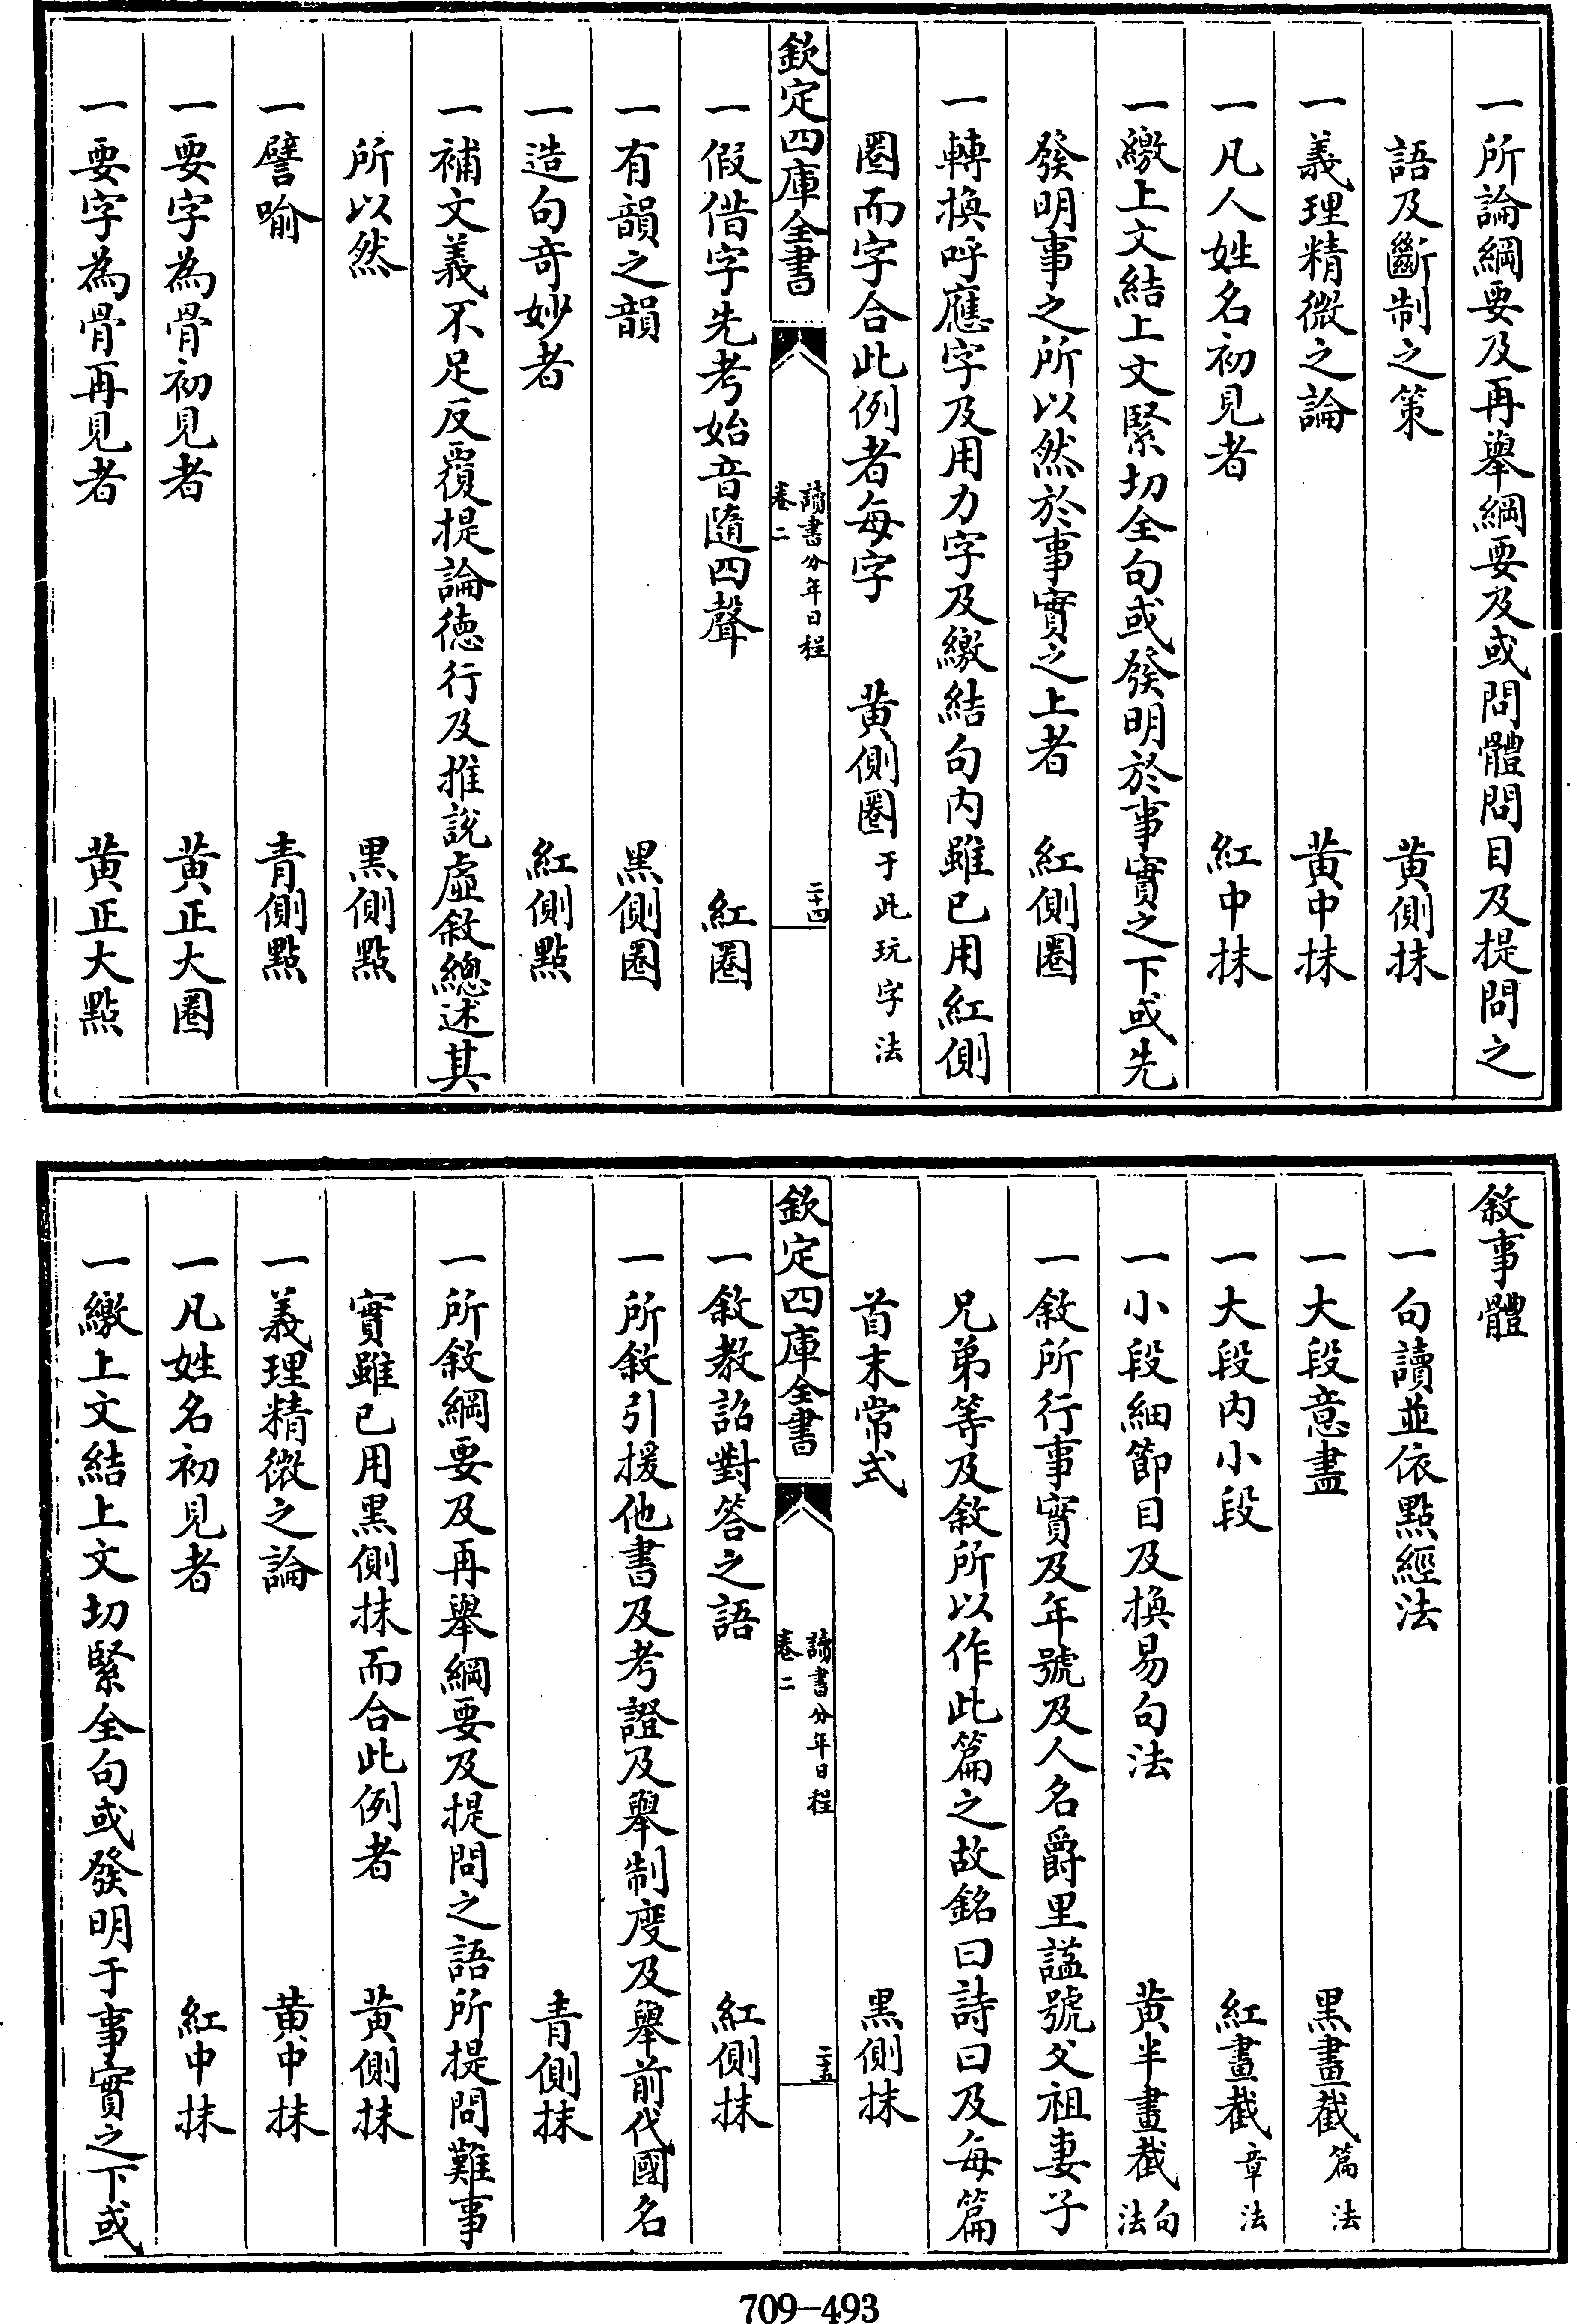 一所論綱要及再舉綱要及或問體問目及提問之
語及斷制之策　黃側抹
一義理精微之論　黃中抹
一凡人姓名初見者　紅中抹
一繳上文結上文緊切全句或發明於事實之下或先
發明事之所以然於事實之上者　紅側圈
一轉換呼應字及用力字及繳結句内雖已用紅側
圈而字合此例者每字　黃側圈于此玩字法
欽定四庫全書　讀書分年日程
卷二　二十四
一假借字先考始音隨四聲　紅圈
一有韻之韻　黑側圈
一造句奇妙者　紅側點
一補文義不足反覆提論徳行及推說虛敘總述其
所以然　黑側點
一譬喻　青側點
一要字為骨初見者　黃正大圈
一要字為骨再見者　黃正大點
敘事體
一句讀並依點經法
一大段意盡　黑畫截篇法
一大段内小段　紅畫截章法
一小段細節目及換易句法　黃半畫截句法
一敘所行事實及年號及人名爵里諡號父祖妻子
兄弟等及敘所以作此篇之故銘曰詩曰及每篇
首末常式　黑側抹
欽定四庫全書　讀書分年日程
卷二　二十五
一敘教詔對答之語　紅側抹
一所敘引援他書及考證及舉制度及舉前代國名
青側抹
一所敘綱要及再舉綱要及提問之語所提問難事
實雖已用黑側抹而合此例者　黃側抹
一義理精微之論　黃中抹
一凡姓名初見者　紅中抹
一繳上文結上文切緊全句或發明于事實之下或
709-493